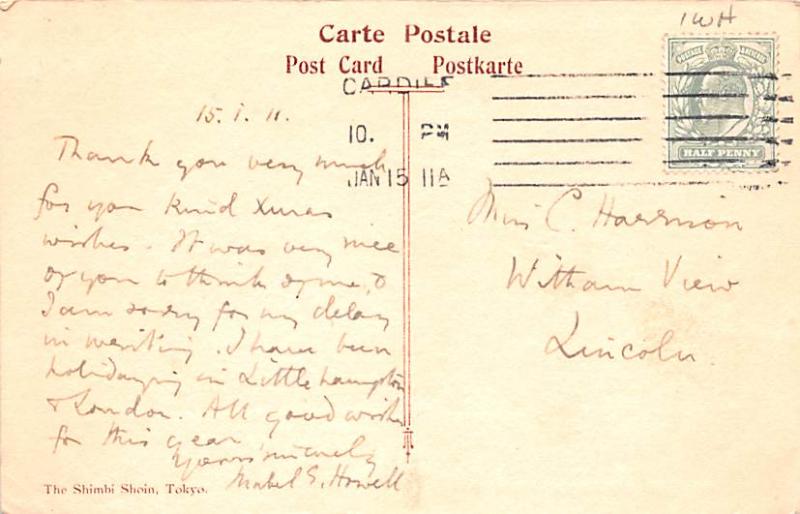 1WH
Carte Postale
Post Card Postkarte
POSTAGE REVENUE
HALF PENNY
CARDIFF
10. PM
JAN 15 11A
15. 1. 11.
Thank you very much
for your kind Xmas
wishes. It was very nice
of you to think of me, &
I am sorry for my delay
in writing. I have been
holidaying in Littlehampton
& London. All good wishes
for this year
Yours sincerely
Mabel E. Howell
Miss C. Harrison
Witham View
Lincoln.
The Shimbi Shoin, Tokyo.